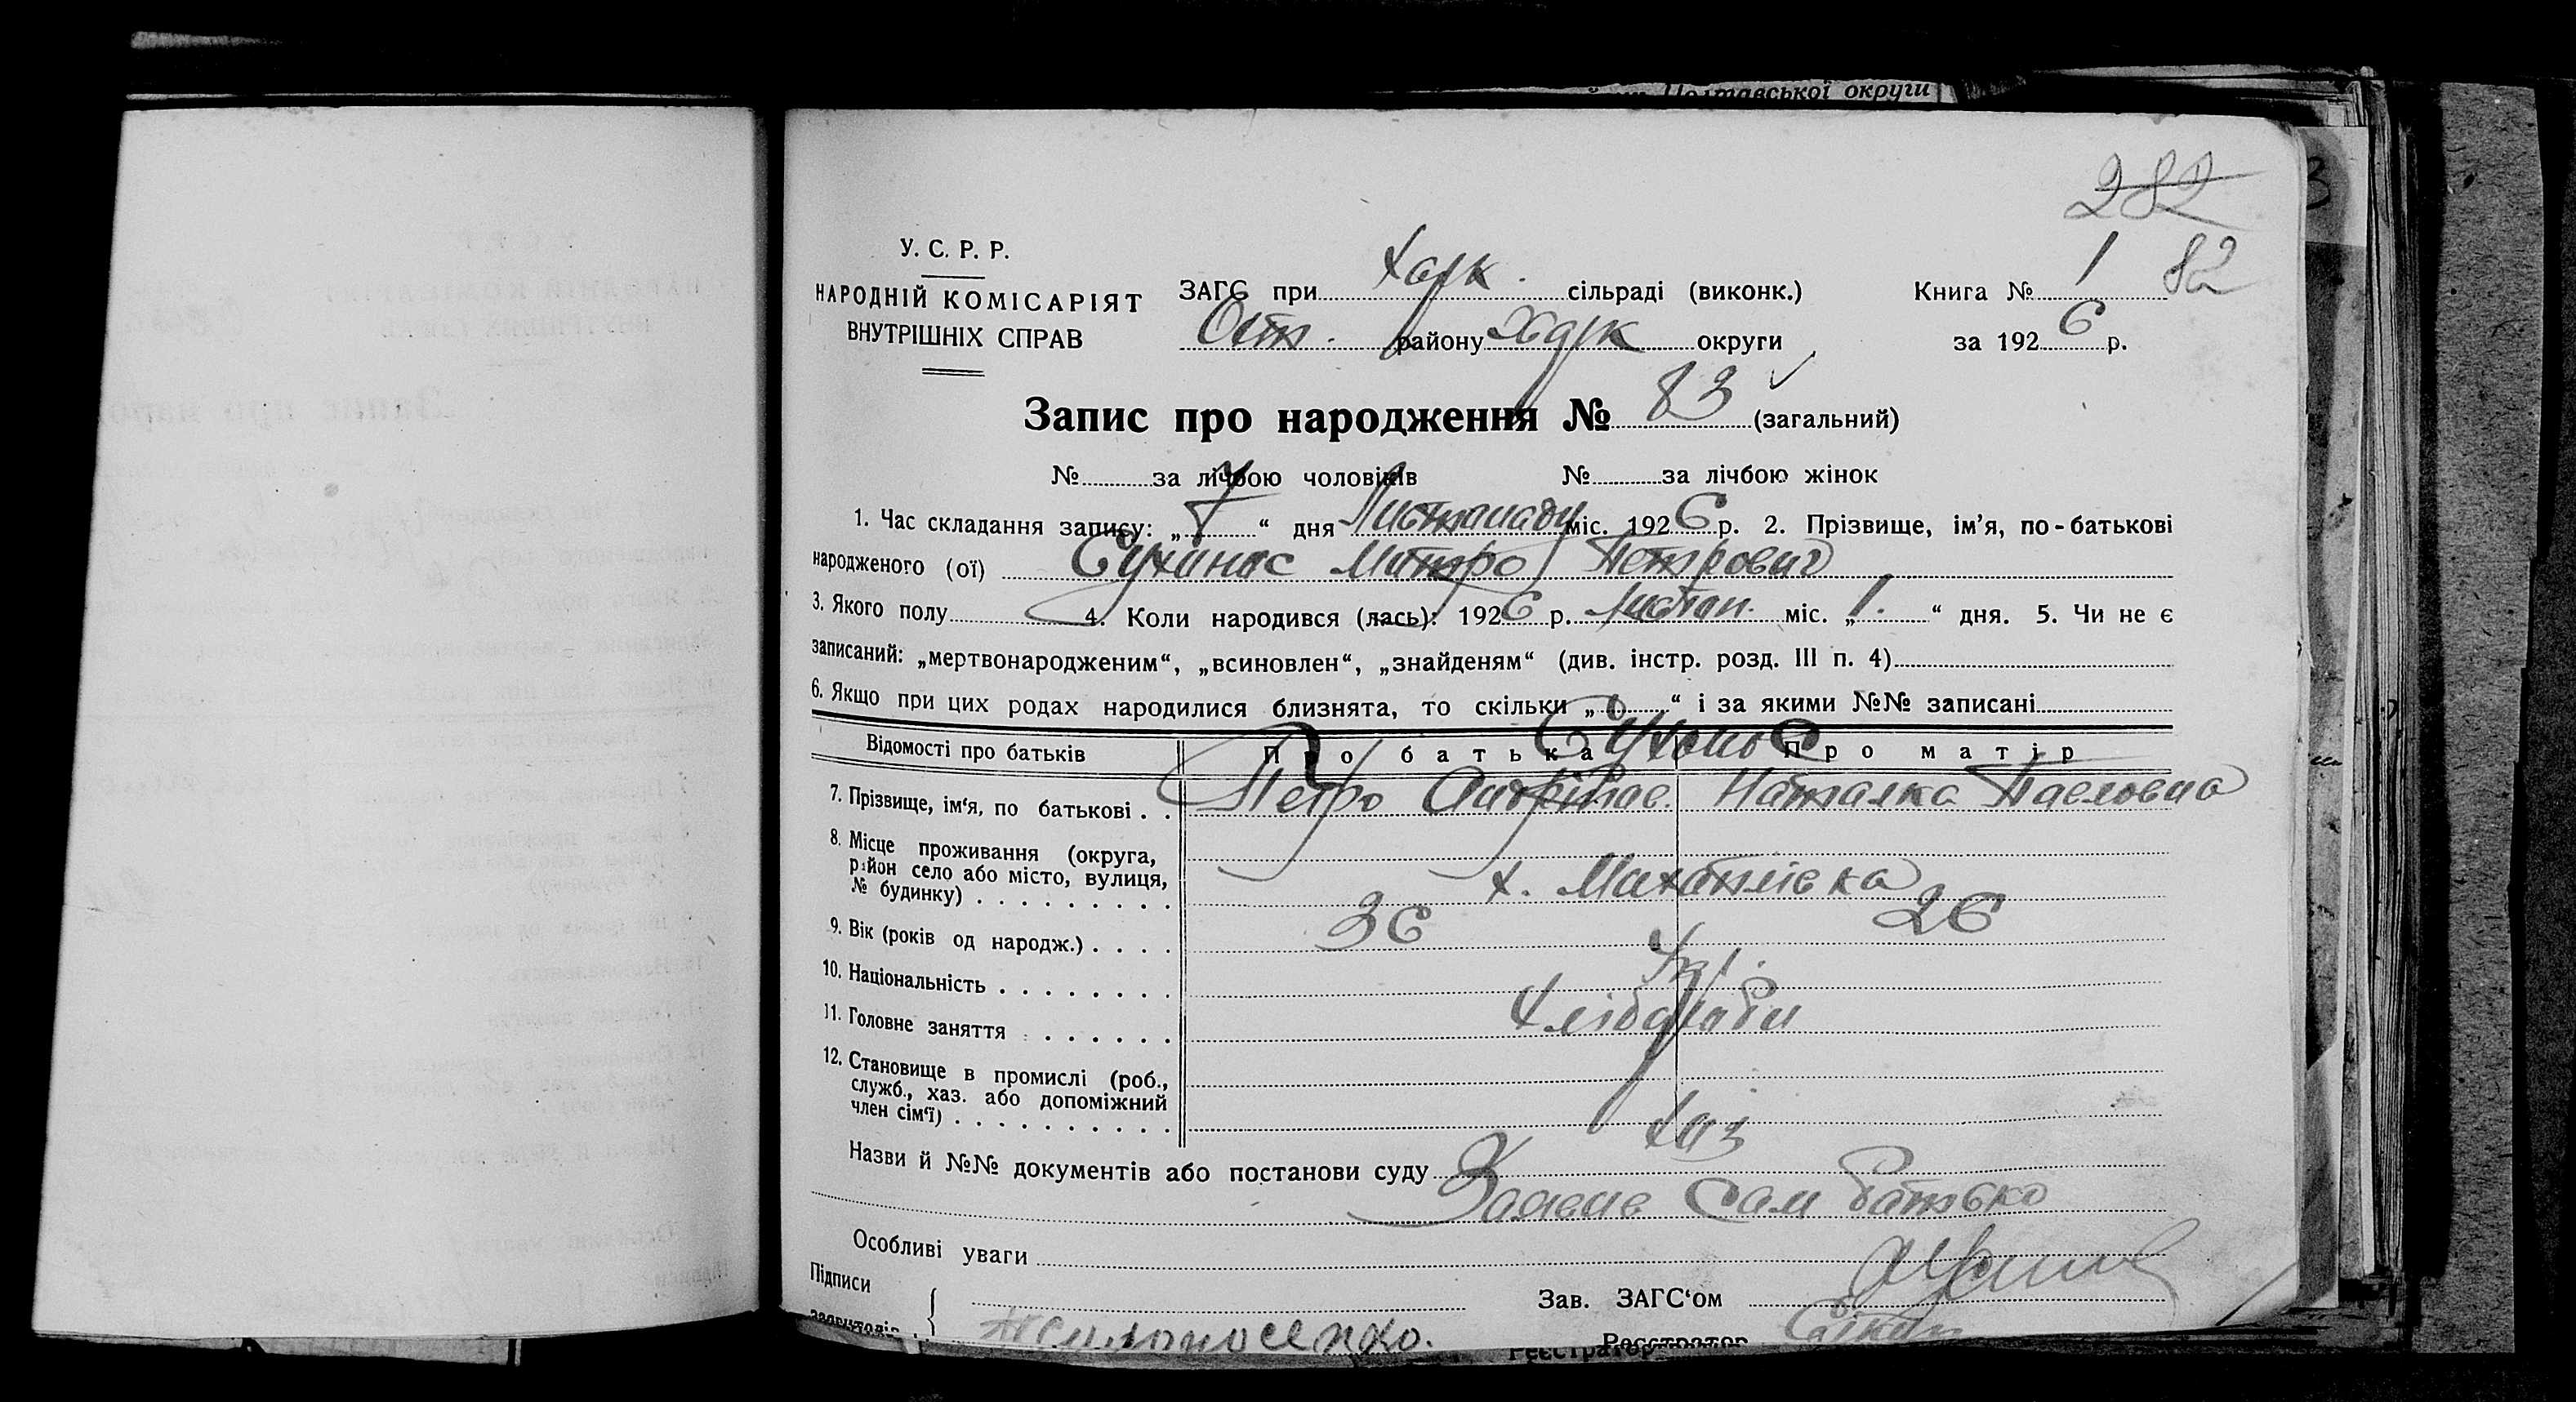 Полтавської округи
282
У. С. Р. Р.
НАРОДНІЙ КОМІСАРІЯТ
ВНУТРІШНІХ СПРАВ
ЗАГС при Харк. сільраді (виконк.)
Книга № 1 82
района Харк округи
за 1926 р.
Запис про народження № 83 (загальний)
№ за лічбою чоловіків № за лічбою жінок
1. Час складання запису: „7“ дня Листопаду міс. 1926 р. 2. Прізвище, ім’я, по-батькові
народженого (ої) Митро Петрович
3. Якого полу 4. Коли народився (лась): 1926 р. Листоп. міс. „1.“ дня. 5. Чи не є
записаний: „мертвонародженим“, „всиновлен“, „знайденям“ (див. інстр. розд. III п. 4)
6. Якщо при цих родах народилися близнята, то скільки „ “ і за якими №№ записані
Відомості про батьків Про батька Про матір
7. Прізвище, ім‘я, по батькові . . Петро Наталка Павловна
8. Місце проживання (округа,
район село або місто, вулиця,
№ будинку) х.
9. Вік (років од народж.) 36 26
10. Національність Укр.
11. Головне заняття Хлібороби
12. Становище в промислі (роб.,
служб., хаз. або допоміжний
член сім‘ї) Хаз
Назви й №№ документів або постанови суду
Заявив Сам батько
Особливі уваги
Підписи
Зав. ЗАГС‘ом
Реєстратор